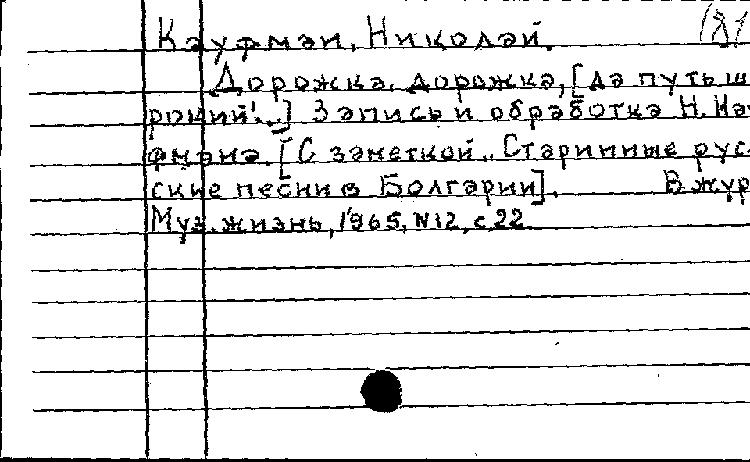 Кауфман, Николай.
Дорожка, дорожка, [да путь ши
рокий!..] Запись и обработка Н. Кау
фмана. [С заметкой „Старинные рус
ские песни в Болгарии].  В жур
Муз. жизнь, 1965, №12, с 22.